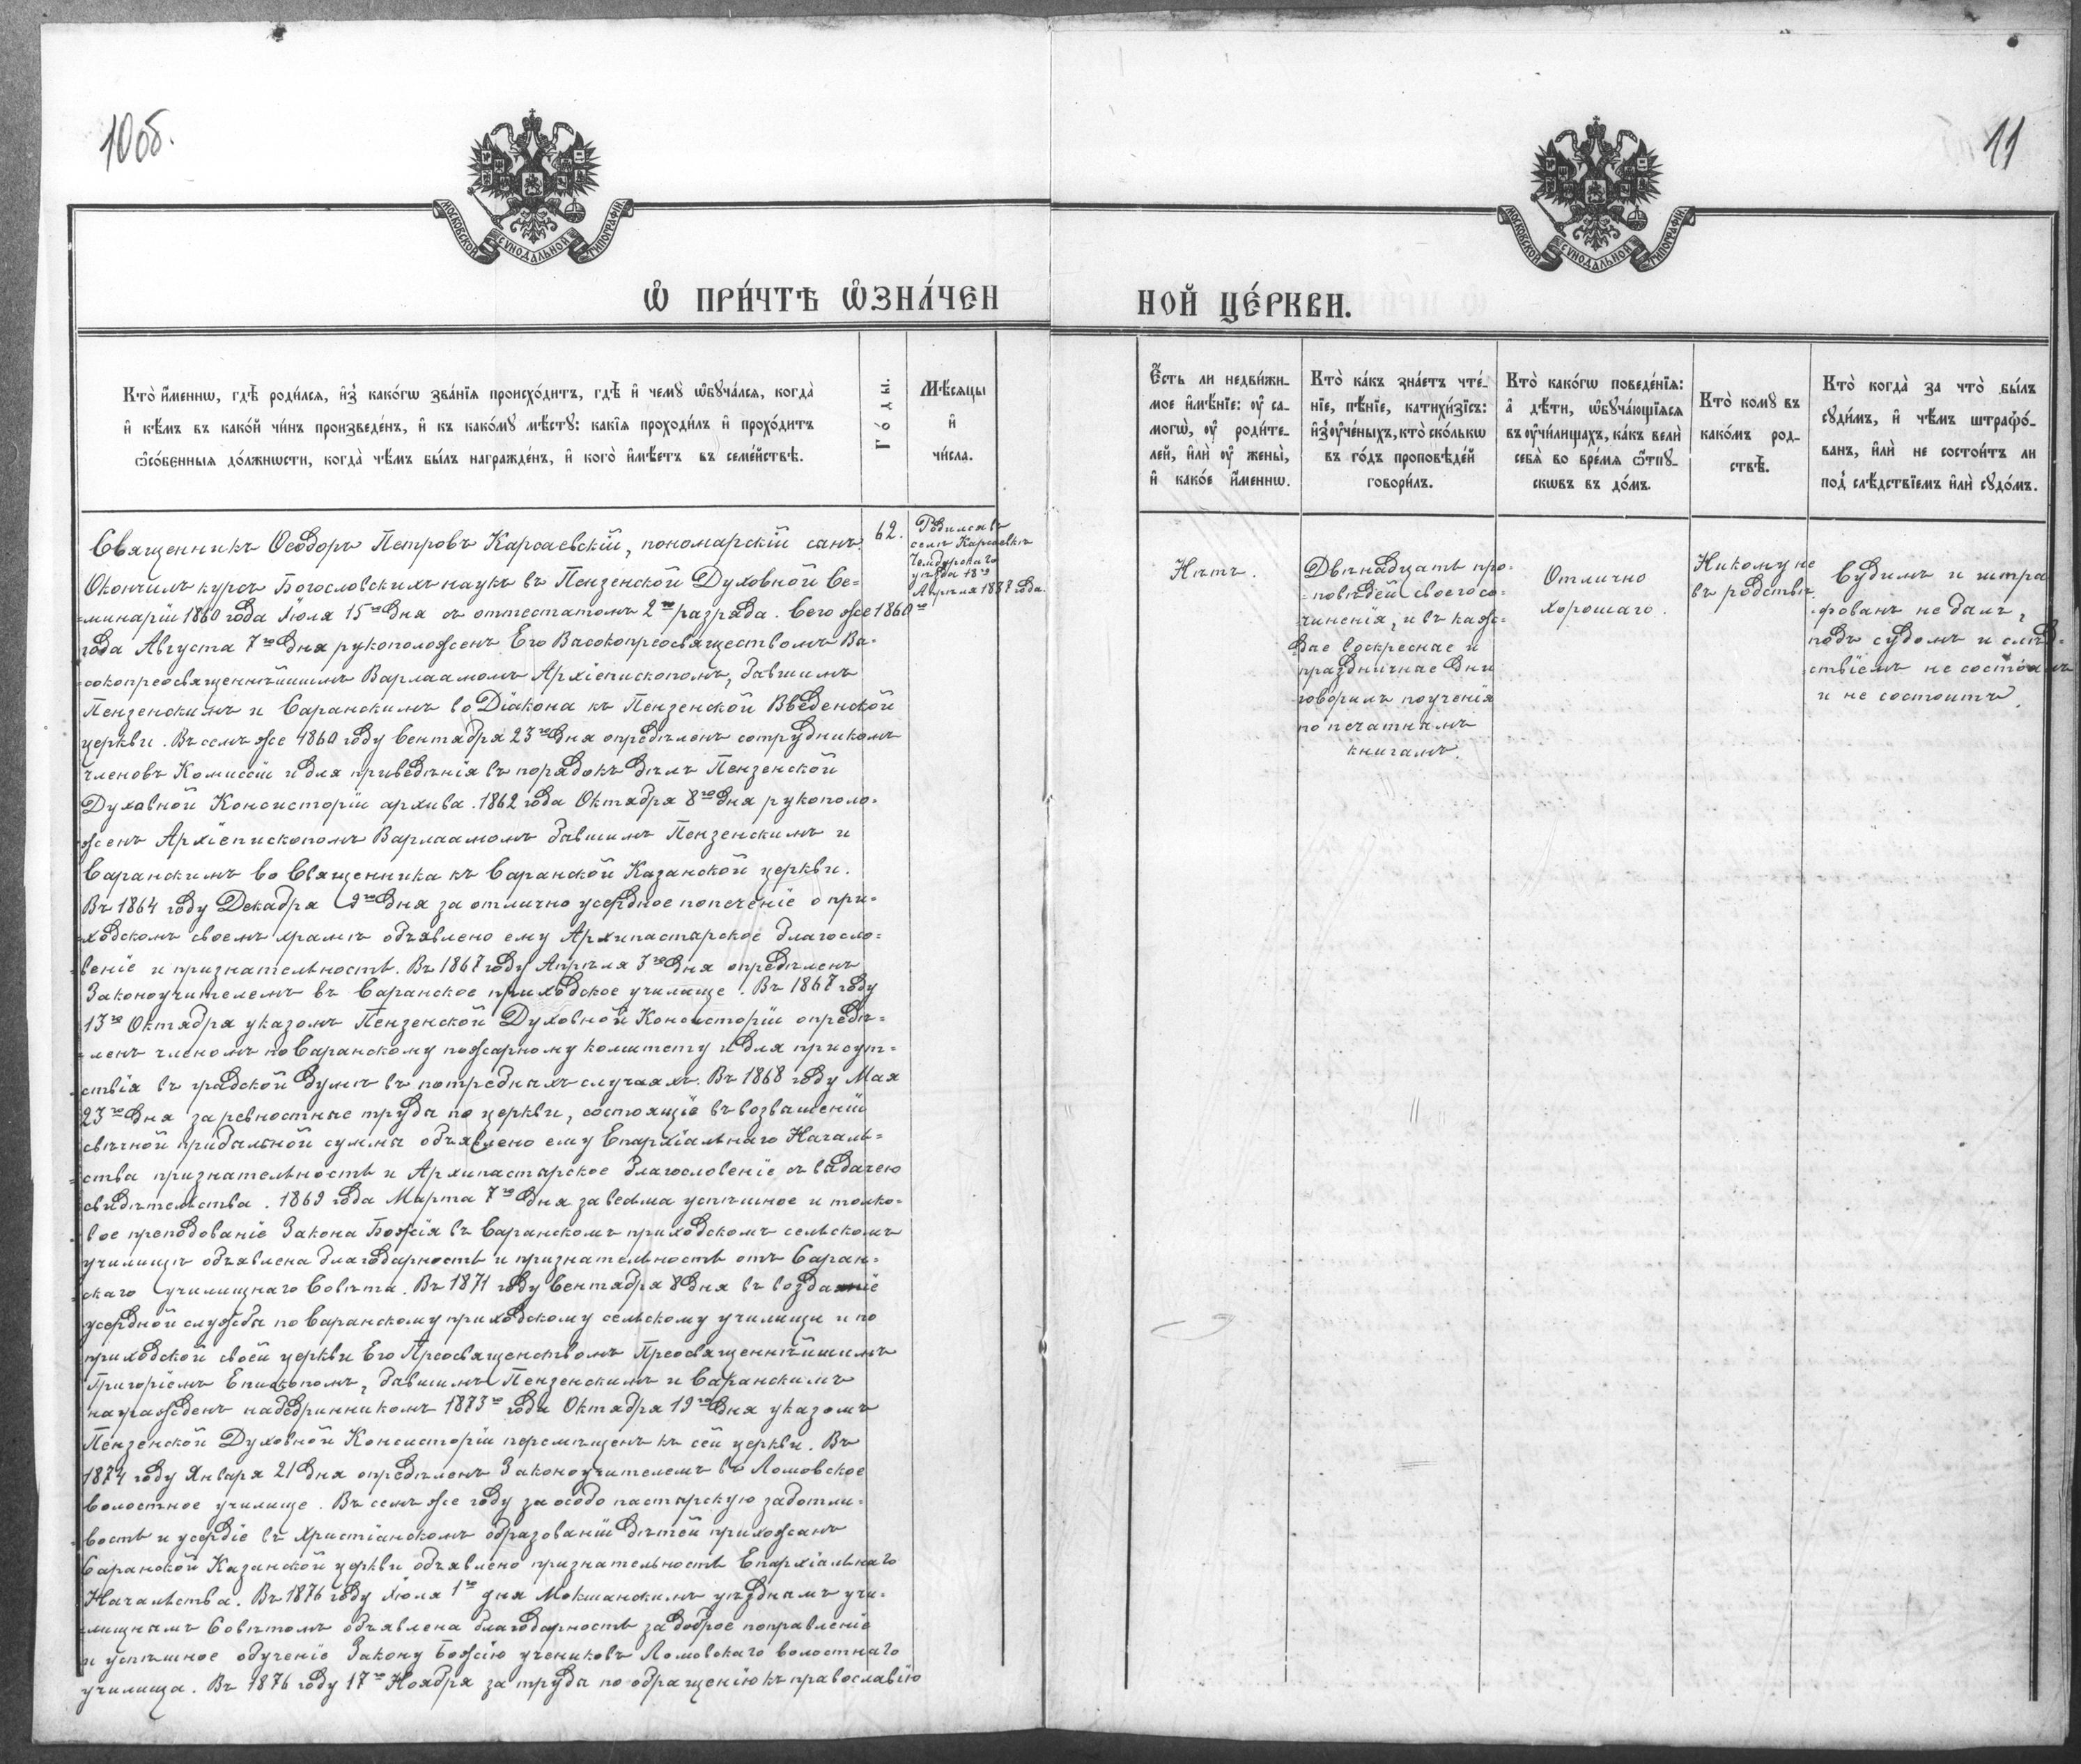 10 об.
11
МОСКОВСКОЙ СУНОДАЛЬНОЙ ТИПОГРАФІИ
МОСКОВСКОЙ СУНОДАЛЬНОЙ ТИПОГРАФІИ
Ѽ ПРИ́ЧТѢ Ѽ҆ЗНА́ЧЕН НОЙ ЦЕ́РКВИ.
Кто̀ и҆́меннѡ, гдѣ̀ роди́лся, и҆з̾ како́гѡ зва́нїя происхо́дитъ, гдѣ̀ и҆ чемꙋ̀ ѡ҆бꙋча́лся, когда̀
и҆ кѣ́мъ въ како́й чи́нъ произведе́нъ, и҆ къ како́мꙋ мѣ́стꙋ: какі̑я проходи́лъ и҆ прохо́дитъ
ѻ҆со́бенныя до́лжнѡсти, когда̀ чѣ́мъ бы́лъ награжде́нъ, и҆ кого̀ и҆мѣ́етъ въ семе́йствѣ.
Го́ды.
Мѣ́сяцы
и҆
чи́сла.
Є҆́сть ли недви́жи-
мое и҆мѣ́нїе: ᲂу҆ са-
могѡ̀, ᲂу҆ роди́те-
лей, и҆лѝ ᲂу҆ жены̀,
и҆ како́е и҆́меннѡ.
Кто̀ ка́къ зна́етъ чте́-
нїе, пѣ́нїе, катихи́зїсъ:
и҆з̾ ᲂу҆че́ныхъ, кто̀ ско́лькѡ
въ го́дъ проповѣ́дей
говори́лъ.
Кто̀ како́гѡ поведе́нїя:
а҆ дѣ́ти, ѡ҆бꙋча́ющїяся
въ ᲂу҆чи́лищахъ, ка́къ велѝ
себя̀ во вре́мя ѿпꙋ-
скѡвъ въ до́мъ.
Кто̀ комꙋ̀ въ
како́мъ род-
ствѣ̀.
Кто̀ когда̀ за что̀ бы́лъ
сꙋди́мъ, и҆ чѣ́мъ штрафо́-
ванъ, и҆лѝ не состои́тъ ли
под̾ слѣ́дствїемъ и҆лѝ сꙋдо́мъ.
Священникъ Ѳеодоръ Петровъ Карсаевскій, пономарскій сынъ.
Окончилъ курсъ Богословскихъ наукъ въ Пензенской Духовной Се-
минаріи 1860 года Іюля 15го дня съ оттестатомъ 2го разряда. Сего же 1860го
года Августа 7го дня рукоположенъ Его Высокопреосвяществомъ Вы-
сокопреосвященнѣйшимъ Варлаамомъ Архіепископомъ, бывшимъ
Пензенскимъ и Саранскимъ во Діакона къ Пензенской Введенской
церкви. Въ семъ же 1860 году Сентября 23го дня опредѣленъ сотрудникомъ
членовъ Комиссіи и для приведенія въ порядокъ дѣлъ Пензенской
Духовной Консисторіи архива. 1862 года Октября 8го дня рукополо-
женъ Архіепископомъ Варлаамомъ бывшимъ Пензенскимъ и
Саранскимъ во Священника къ Саранской Казанской церкви.
Въ 1864 году Декабря 9го дня за отлично усердное попеченіе о при-
ходскомъ своемъ храмѣ объявлено ему Архипастырское благосло-
веніе и признательность. Въ 1867 году Апрѣля 3го дня опредѣленъ
Законоучителемъ въ Саранское приходское училище. Въ 1867 году
13го Октября указомъ Пензенской Духовной Консисторіи опредѣ-
ленъ членомъ по Саранскому пожарному комитету и для присут-
ствія въ градской думѣ въ потребныхъ случаяхъ. Въ 1868 году Мая
23го дня за ревностные труды по церкви, состоящіе въ возвышеніи
свѣчной прибыльной суммы объявлено ему Епархіальнаго Началь-
ства признательность и Архипастырское благословеніе съ выдачею
свидѣтельства. 1869 года Марта 7го дня за весьма успѣшное и толко-
вое преподованіе Закона Божія въ Саранскомъ приходскомъ сельскомъ
училищѣ объявлена благодарность и признательность отъ Саран-
скаго училищнаго Совѣта. Въ 1871 году Сентября 8 дня въ воздаяніе
усердной службы по Саранскому приходскому сельскому училищу и по
приходской своей церкви Его Преосвященствомъ Преосвященнѣйшимъ
Григоріемъ Епископомъ, бывшимъ Пензенскимъ и Саранскимъ
награжденъ набедринникомъ 1873го года Октября 19го дня указомъ
Пензенской Духовной Консисторіи перемѣщенъ къ сей церкви. Въ
1874 году Января 21 дня опредѣленъ Законоучителемъ въ Ломовское
волостное училище. Въ семъ же году за особо пастырскую заботли-
вость и усердіе въ христіанскомъ образованіи дѣтей прихожанъ
Саранской Казанской церкви объявлено признательность Епархіальнаго
Начальства. Въ 1876 году Іюля 1го дня Мокшанскимъ уѣзднымъ учи-
лищнымъ Совѣтомъ объявлена благодарность за доброе поправленіе
и успѣшное обученіе Закону Божію учениковъ Ломовскаго волостнаго
училища. Въ 1876 году 17го Ноября за труды по обращенію къ православію
62.
Родился въ
селѣ Карсаевкѣ
Чембарскаго
уѣзда 18го
Апрѣля 1837 года.
Нѣтъ.
Двѣнадцать про-
повѣдей своего со-
чиненія, и въ каж-
дые воскресные и
праздничные дни
говорилъ поученія
по печатнымъ
книгамъ.
Отлично
хорошаго.
Никому не
въ родствѣ.
Судимъ и штра
фованъ не былъ,
подъ судомъ и слѣд-
ствіемъ не состоялъ
и не состоитъ.